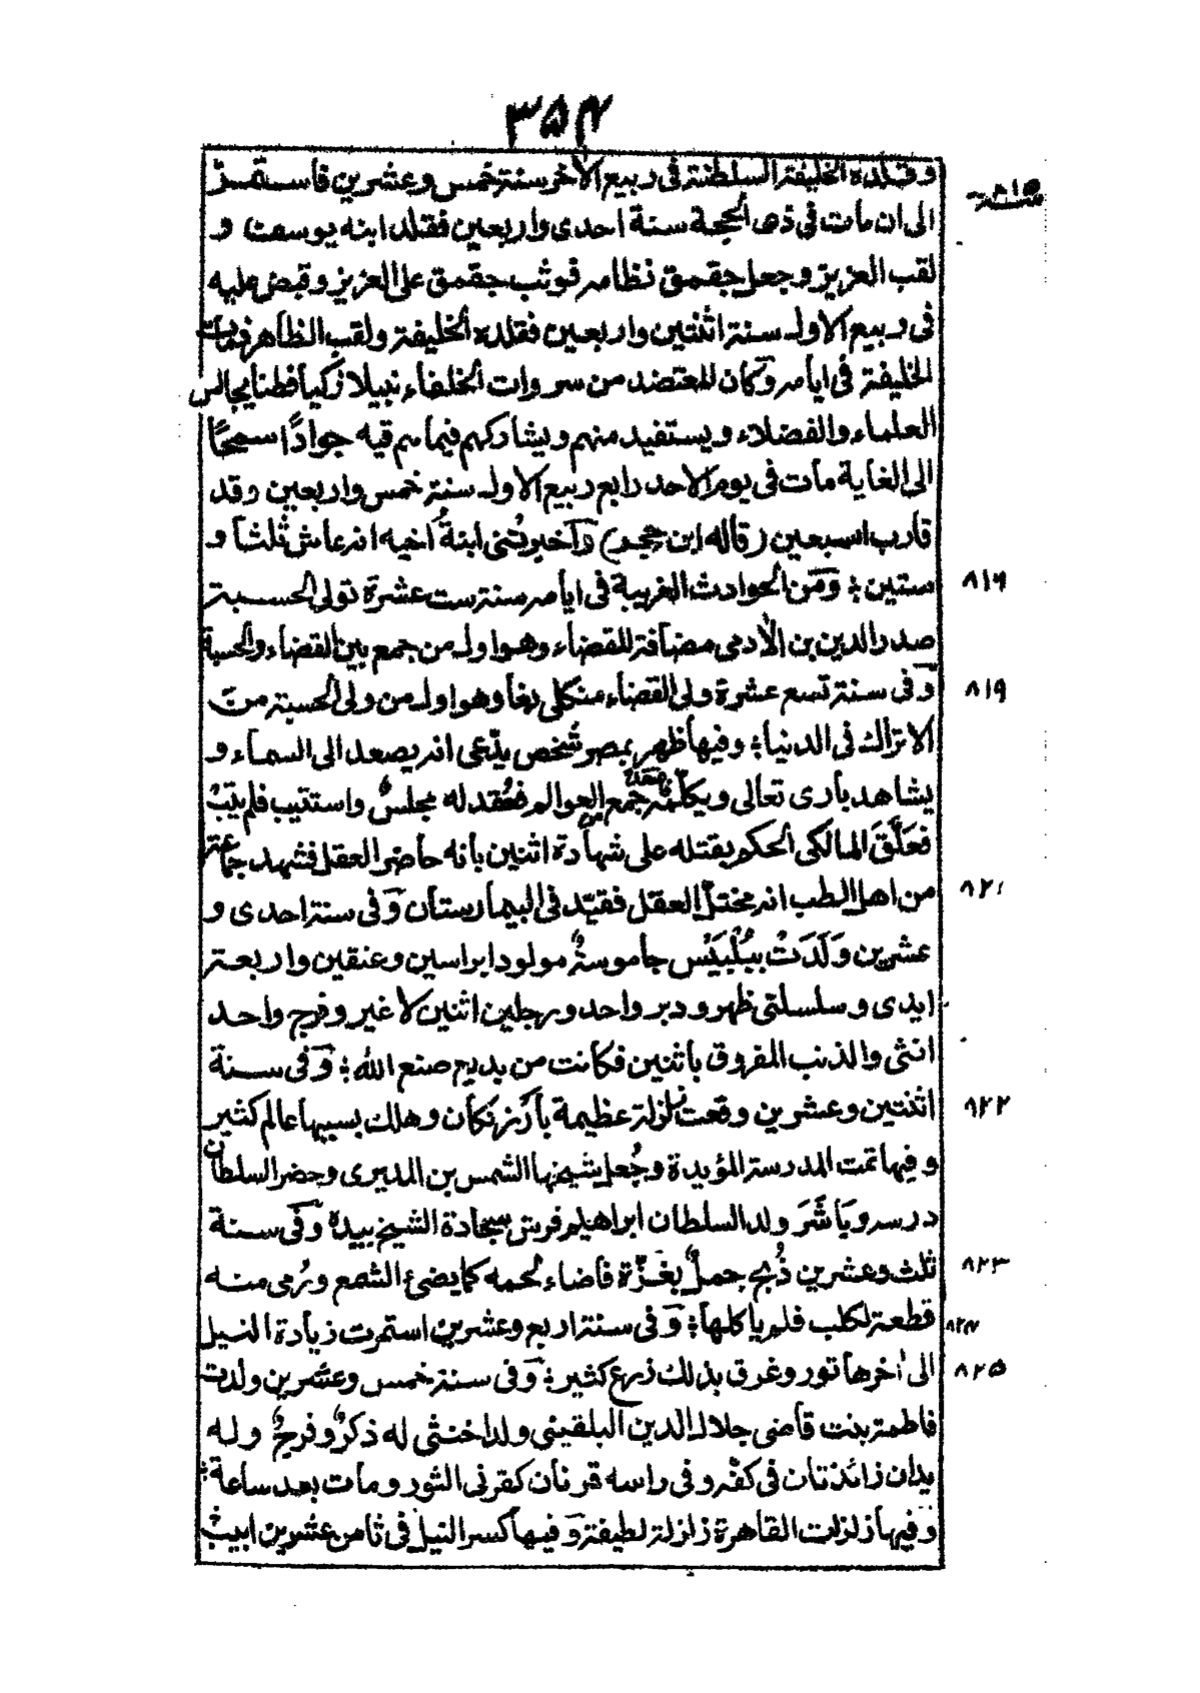 ٣٥٤
وقلده الخليفة السلطنة فى ربيع الاٰخر سنة خمس وعشرين فاستقر
الى ان مات فى ذى الحجة سنة احدى واربعين فقلد ابنه يوسف و
لقب العزيز وجعل جقمق نظامه فوثب جقمق على العزيز وقبض عليه
فى ربيع الاول سنة اثنتين واربعين فقلده الخليفة ولقب الظاهر فمات
الخليفة فى ايامه وكان المعتضد من سروات الخلفاء نبيلا زكيا فطنا يجالس
العلماء والفضلاء ويستفيد منهم ويشاركهم فيما هم فيه جوادًا سمحًا
الى الغاية مات فى يوم الاحد رابع ربيع الاول سنة خمس واربعين وقد
قارب السبعين (قاله ابن حجر) واخبرتنى ابنةُ اخيه انه عاش ثلثا و
ستين؛ ومن الحوادث الغريبة فى ايامه سنة ست عشرة تولى الحسبة
٨١٦
صدر الدين بن الاٰدمى مضافة للقضاء وهو اول من جمع بين القضاء والحسبة
وفى سنة تسع عشرة ولى القضاء منكلى بغا وهو اول من ولى الحسبة من
٨١٩
الاتراك فى الدنيا؛ وفيها ظهر بمصر شخص يدّعى انه يصعد الى السماء و
يشاهد بارى تعالى ويكلمه جمع من العوام فعُقد له مجلسٌ واستتيب فلم يتبْ
فعَلَّقَ المالكى الحكم بقتله على شهادة اثنين بانه حاضر العقل فشهد جماعة
من اهل الطب انه مختلّ العقل فقيّد فى البيمارستان وفى سنة احدى و
٨٢١
عشرين وَلَدَتْ ببُلْبَيْس جاموسةٌ مولودا براسين وعنقين واربعة
ايدى وسلسلتى ظهر ودبر واحد ورجلين اثنين لا غير وفرج واحد
انثى والذنب المفروق باثنين فكانت من بديع صنع الله؛ وفى سنة
اثنتين وعشرين وقعت زلزلة عظيمة بأَرْزنكان وهلك بسببها عالم كثير
٨٢٢
وفيها تمت المدرسة المؤيدة وجُعل شيخها الشمس بن المديرى وحضر السلطان
درسه وبَاشَرَ ولد السلطان ابراهيم فرش سجادة الشيخ بيده وفى سنة
ثلث وعشرين ذُبح جملٌ بغَزّة فاضاء لحمه كما يضئ الشمع ورُمى منه
٨٢٣
قطعة لكلب فلم ياكلها؛ وفى سنة اربع وعشرين استمرت زيادة النيل
٨٢٤
الى اٰخر هاتور وغرق بذلك زرع كثير؛ وفى سنة خمس وعشرين ولدت
٨٢٥
فاطمة بنت قاضى جلال الدين البلقينى ولدا خنثى له ذكرٌ وفرجٌ وله
يدان زائدتان فى كفّه وفى راسه قرنان كقرنى الثور ومات بعد ساعة؛
وفيها زلزلت القاهرة زلزلة لطيفة وفيها كسر النيل فى ثامن عشرين ابيب